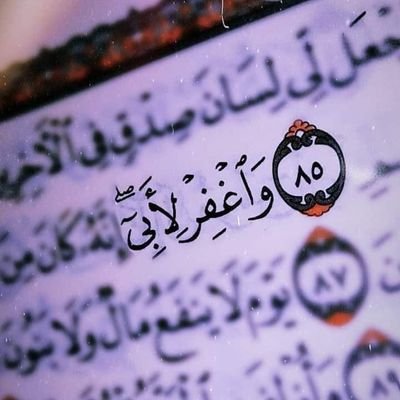 جْعَل لِّى لِسَانَ صِدْقٍ فِى ٱلْأَخِرِ
٨٥ وَٱغْفِرْ لِأَبِىٓ إِنَّهُۥ كَانَ مِنَ
٨٧ يَوْمَ لَا يَنفَعُ مَالٌ وَلَا بَنُونَ